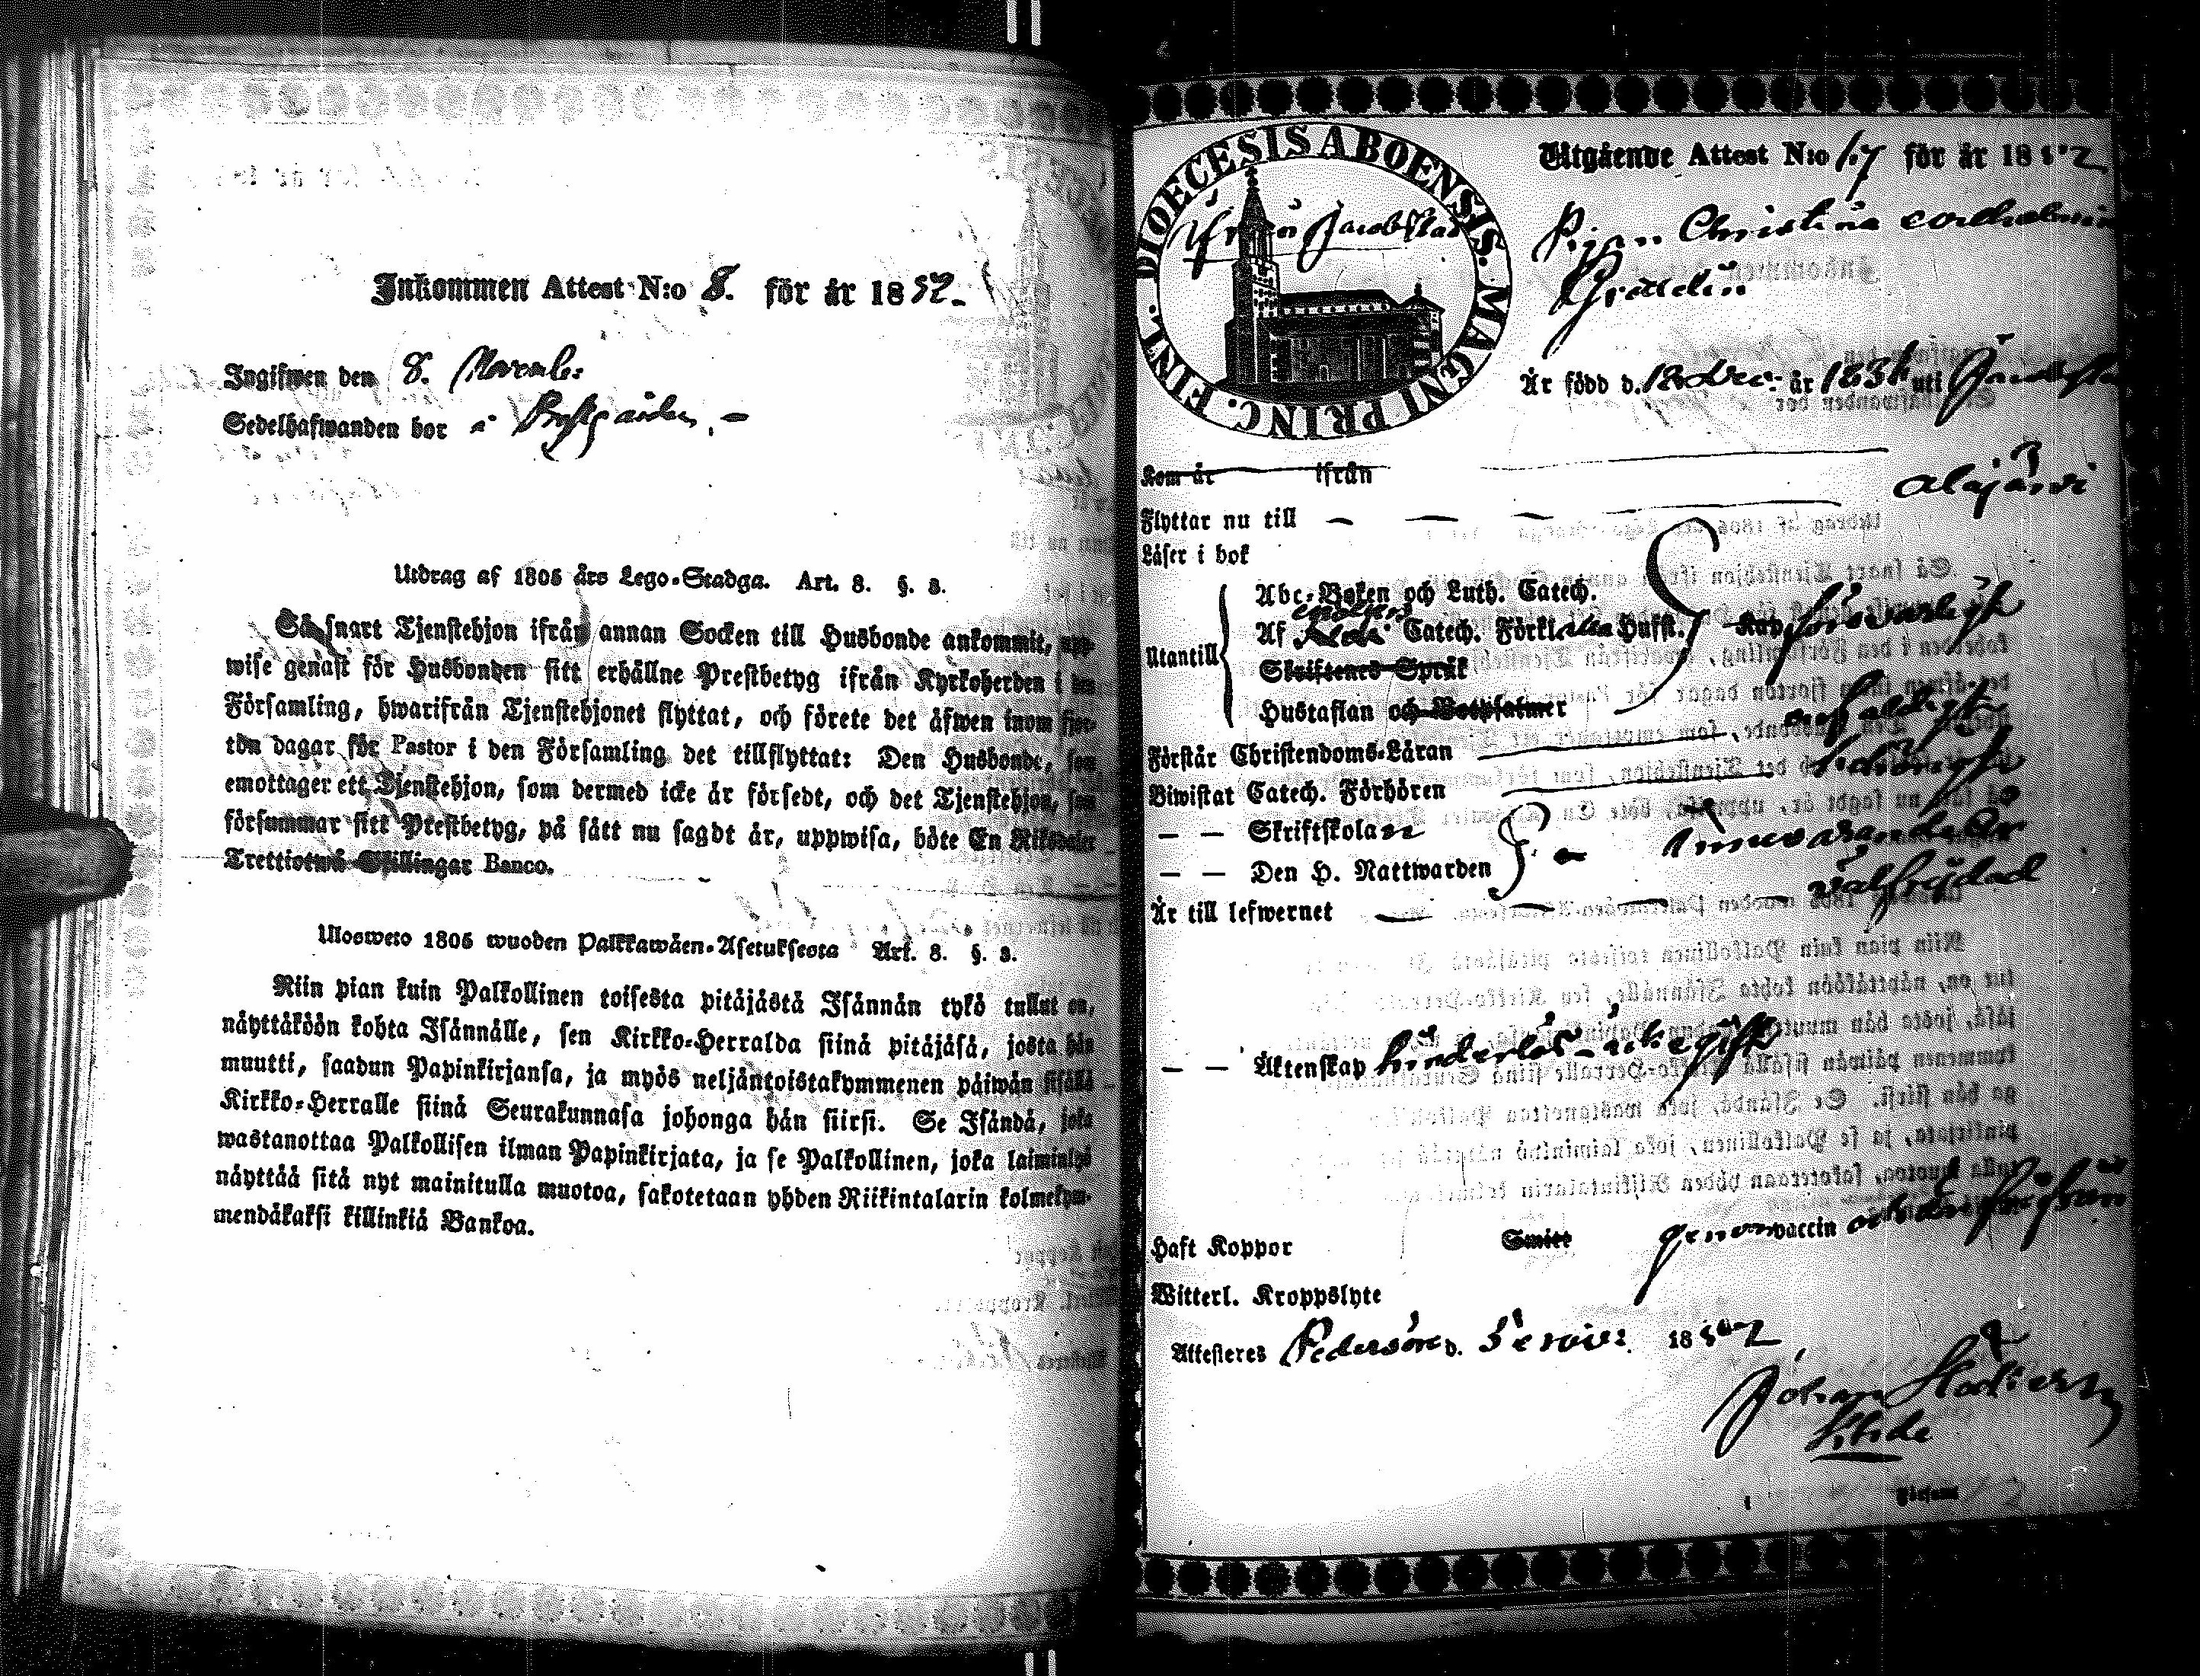 Inkommen Attest N:o 8. för år 1852.
Ingifwen den 8. Novemb:
Sedelhafwanden bor i Prestgården.
Utdrag af 1805 års Lego-Stadga. Art. 8. §. 3.
Så snart Tjenstehjon ifrån annan Socken till Husbonde ankommit, upp-
wise genast för Husbonden sitt erhållne Prestbetyg ifrån Kyrkoherden i den
Församling, hwarifrån Tjenstehjonet flyttat, och förete det äfwen inom fjor-
ton dagar för Pastor i den Församling det tillflyttat: Den Husbonde, som
emottager ett Tjenstehjon, som dermed icke är försedt, och det Tjenstehjon, som
försummar sitt Prestbetyg, på sätt nu sagdt är, uppwisa, böte En Riksdaler
Trettiotwå Skillingar Banco.
Ulosweto 1805 wuoden Palkkawäen-Asetuksesta Art. 8. §. 3.
Niin pian kuin Palkollinen toisesta pitäjästä Isännän tykö tullut on,
näyttäköön kohta Isännälle, sen Kirkko-Herralda siinä pitäjäsä, josta hän
muutti, saadun Papinkirjansa, ja myös neljäntoistakymmenen päiwän sisällä
Kirkko-Herralle siinä Seurakunnasa johonga hän siirsi. Se Isändä, joka
wastanottaa Palkollisen ilman Papinkirjata, ja se Palkollinen, joka laiminlyö
näyttää sitä nyt mainitulla muotoa, sakotetaan yhden Riikintalarin kolmekym-
mendäkaksi killinkiä Bankoa.
DIOECESIS ABOENSIS. MAGNI PRINC. FINL.
Ifrån Jacobstad
Utgående Attest N:o 17 för år 1852
Pigan Christina
Är född d. 18 Dec: år uti Jacobstad
Kom år ifrån
Alajärvi
Flyttar nu till
Läser i bok
Utantill
Abc-Boken och Luth. Catech.
Af Catech. Förkl. Hufst. försvarligt
Skriftenes Språk
Hustaflan och Botpsalmer
Förstår Christendoms-Läran
Biwistat Catech. Förhören
— — Skriftskolan
— — Den H. Nattwarden innevarande år
Är till lefwernet välfrejdad
— — Äktenskap hinderlös - icke gift
Haft Koppor Smitt genom vaccin
Witterl. Kroppslyte
Attesteres Pedersöre d. 1852
Johan